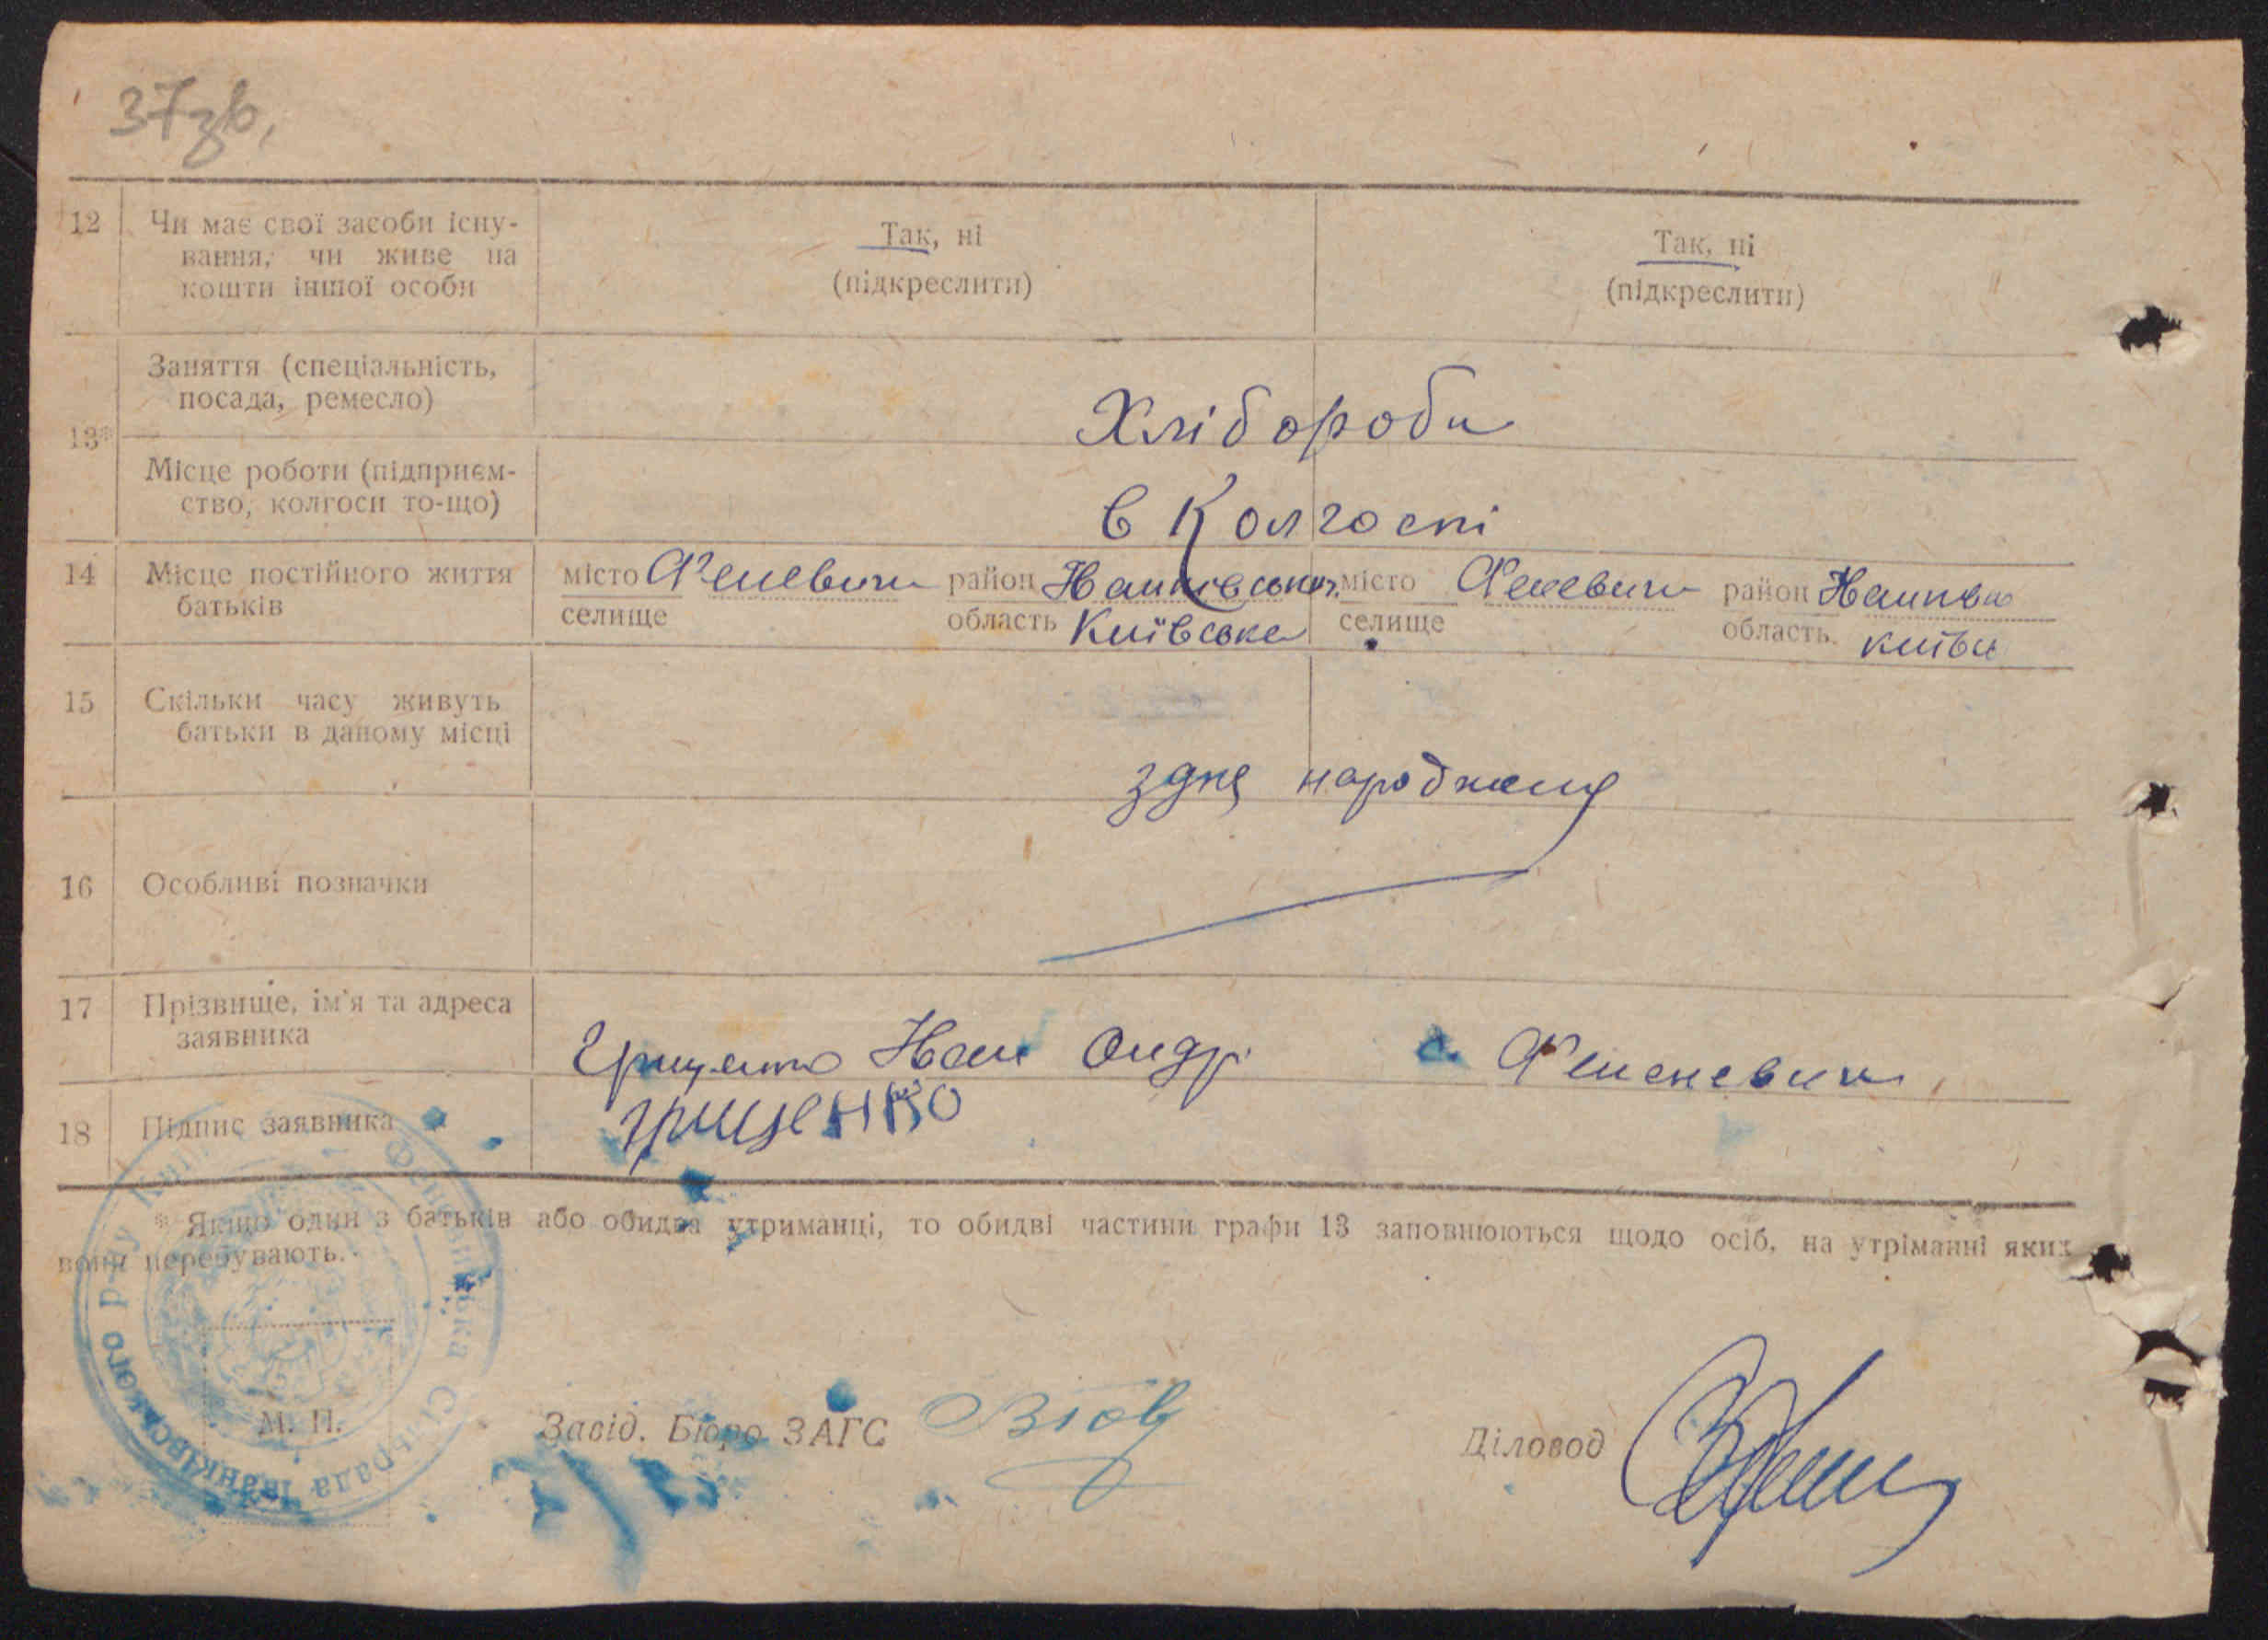 37зв.
12 Чи має свої засоби існу-
вання, чи живе на
кошти іншої особи
Так, ні
(підкреслити)
Так, ні
(підкреслити)
13*
Заняття (спеціальність,
посада, ремесло)
Хлібороби
Місце роботи (підприєм-
ство, колгосп то-що)
в Колгоспі
14 Місце постійного життя
батьків
місто Феневичи район
селище область Київська
місто Феневичи район
селище область
15 Скільки часу живуть
батьки в даному місці
з дня народження
16 Особливі позначки
17 Прізвище, ім'я та адреса
заявника
Грищенко Іван Андр. с. Феневичи
18 Підпис заявника
грищенко
* Якщо один з батьків або обидва утриманці, то обидві частини графи 13 заповнюються щодо осіб, на утріманні яких
вони перебувають.
Феневицька Сільрада Іванківського р-ну
М. П.
Завід. Бюро ЗАГС
Діловод